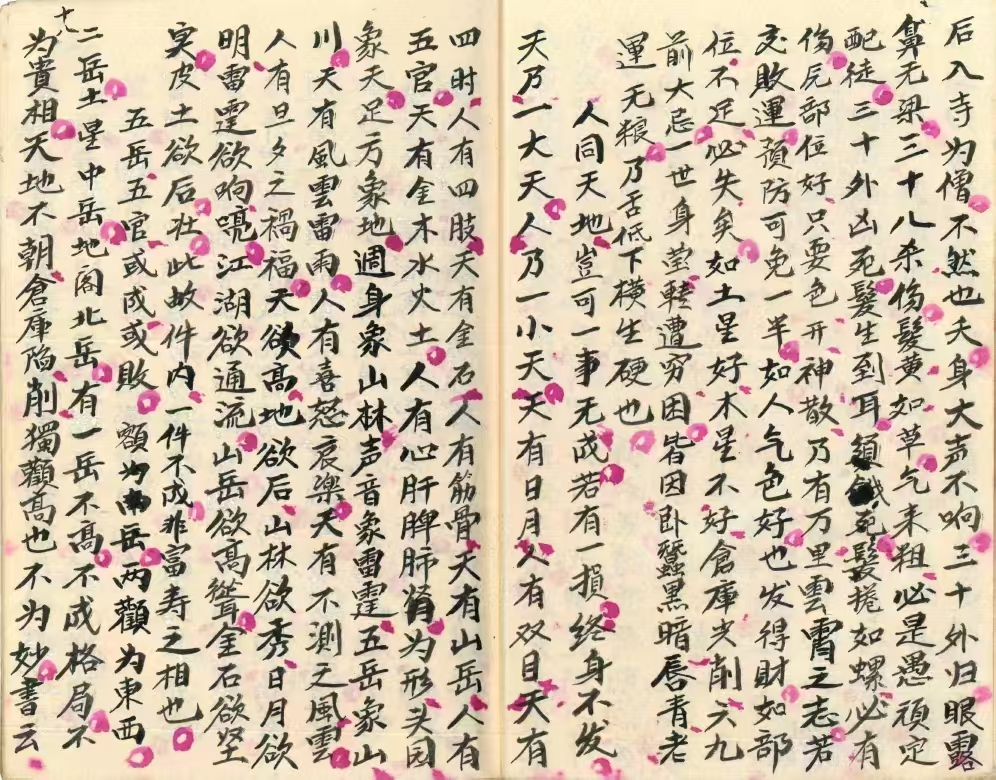 后入寺为僧不然也夫身大声不响三十外归眼露
鼻无梁三十八杀伤髮黄如草气来粗必是愚顽定
配徒三十外凶死髮生到耳须饿死髮捲如螺必有
伤尻部位好只要色开神散乃有万里雲霄之志若
交敗運預防可免一半如人气色好也发得財如部
位不足必失矣如土星好木星不好倉庫尖削六九
前大忌一世身莹轉遭穷困皆因卧蠶黑暗唇青老
運无粮乃舌低下横生硬也
人同天地豈可一事无成若有一損终身不发
天乃一大天人乃一小天天有日月人有双目天有
四时人有四肢天有金石人有筋骨天有山岳人有
五官天有金木水火土人有心肝脾肺肾为形头园
象天足方象地週身象山林声音象雷霆五岳象山
川天有風雲雷雨人有喜怒哀樂天有不测之風雲
人有旦夕之禍福天欲高地欲后山林欲秀日月欲
明雷霆欲响喨江湖欲通流山岳欲高聳金石欲坚
实皮土欲后壮此故件内一件不成非富寿之相也
五岳五官或成或敗 額为南岳两顴为東西
二岳土星中岳地阁北岳有一岳不高不成格局不
为貴相天地不朝倉庫陷削獨顴高也不为妙書云
十八